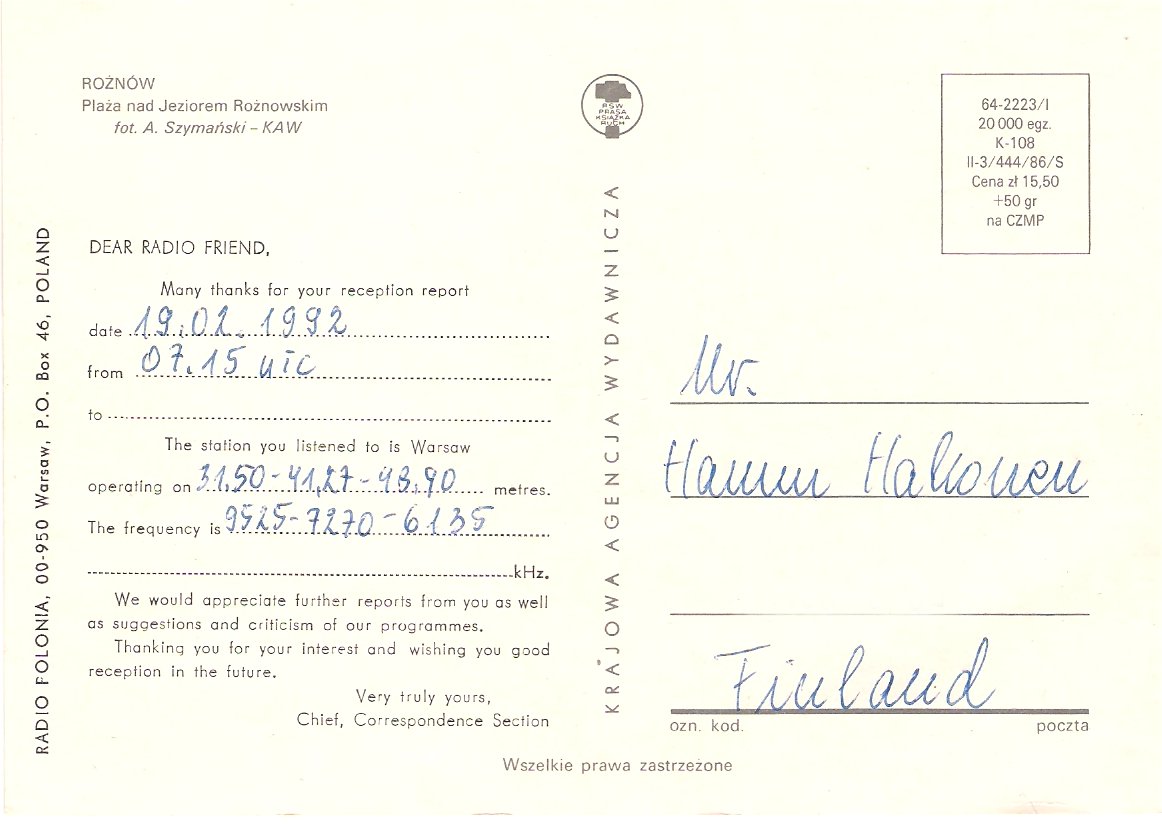 ROŻNÓW
Plaża nad Jeziorem Rożnowskim
fot. A. Szymański – KAW
RADIO POLONIA, 00-950 Warsaw, P.O. Box 46, POLAND
DEAR RADIO FRIEND,
Many thanks for your reception report
date 19.02.1992
from 07.15 UTC
to
The station you listened to is Warsaw
operating on 31,50-41,27-48,90 metres.
The frequency is 9525-7270-6135
kHz.
We would appreciate further reports from you as well
as suggestions and criticism of our programmes.
Thanking you for your interest and wishing you good
reception in the future.
Very truly yours,
Chief, Correspondence Section
RSW
PRASA
KSIĄŻKA
RUCH
KRAJOWA AGENCJA WYDAWNICZA
64-2223/I
20 000 egz.
K-108
II-3/444/86/S
Cena zł 15,50
+50 gr
na CZMP
Mr.
Hannu Halonen
Finland
ozn. kod. poczta
Wszelkie prawa zastrzeżone